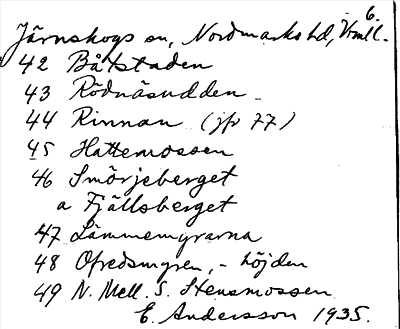 6.
Järnskogs sn, Nordmarks hd, Vrml.
42 Båtstaden
43 Rödnäsudden
44 Rinnan (jfr 77)
45 Hattemossen
46 Smörjeberget
a Fjällsberget
47 Lämmemyrarna
48 Ofredsmyren, - höjden
49 N. Mell. S. Stensmossen
E. Andersson 1935.